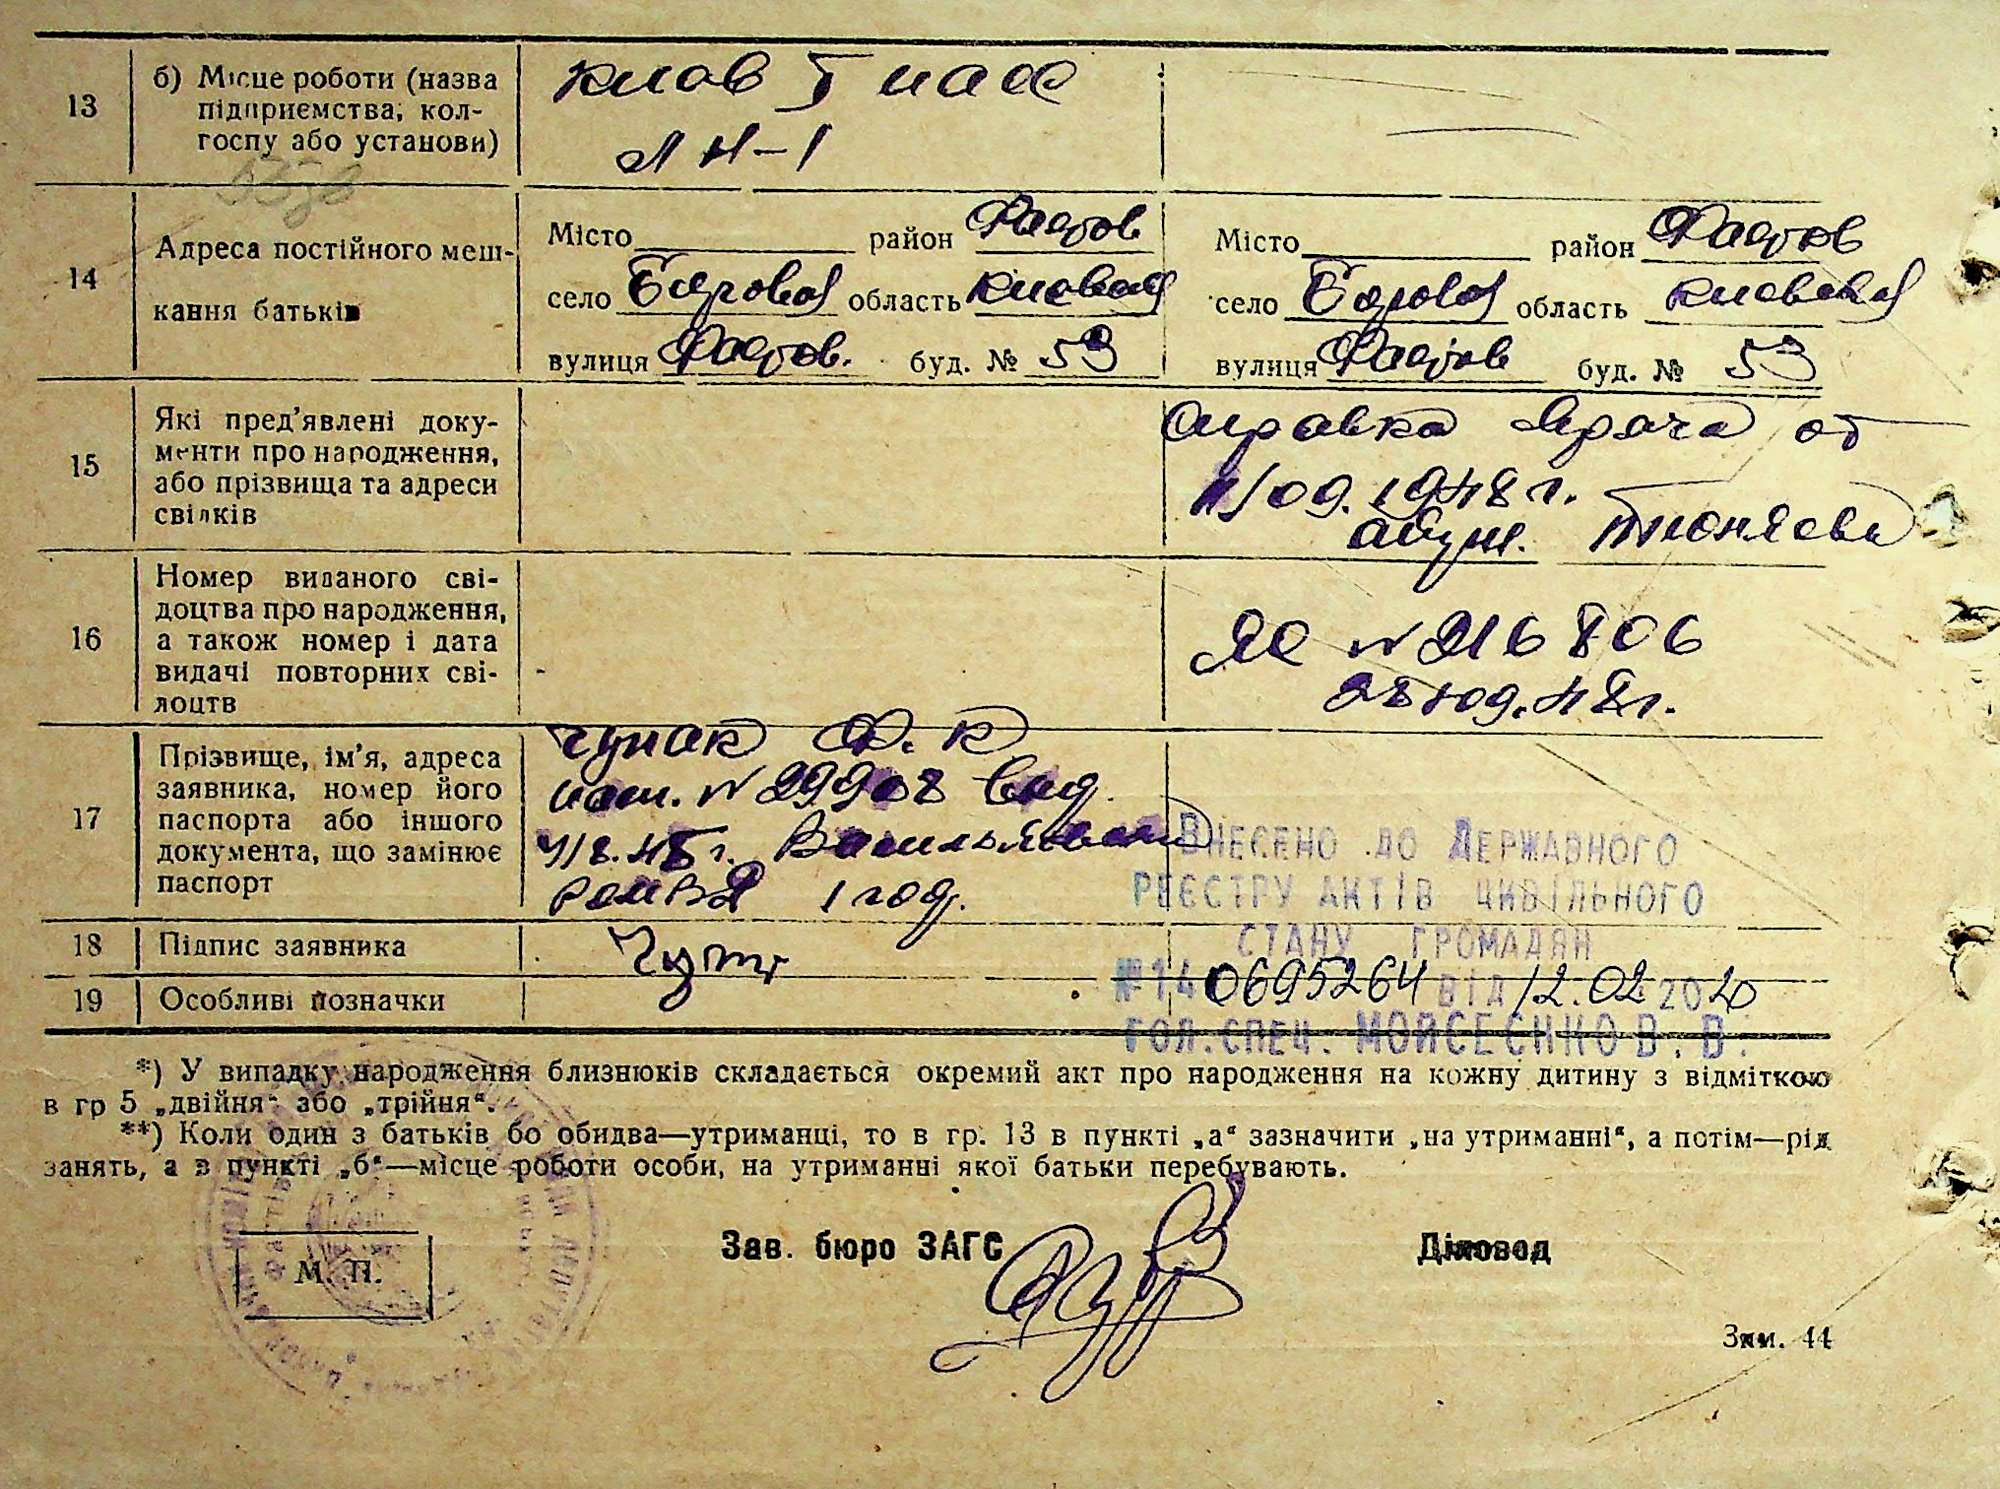 13
б) Місце роботи (назва
підприємства, кол-
госпу або установи)
Киев I пасс
14
Адреса постійного меш-
кання батьків
Місто район Фастов
село область Киевская
вулиця Фастов. буд. № 53
Місто район Фастов
село область Киевская
вулиця Фастов буд. № 53
15
Які пред'явлені доку-
менти про народження,
або прізвища та адреси
свідків
Справка Врача от
09.1948 г.
16
Номер виданого сві-
доцтва про народження,
а також номер і дата
видачі повторних сві-
доцтв
N 216806
48 г.
17
Прізвище, ім'я, адреса
заявника, номер його
паспорта або іншого
документа, що замінює
паспорт
Ф. К
пасп. N 299908 выд.
1 год.
18
Підпис заявника
19
Особливі позначки
Внесено до Державного
реєстру актів цивільного
стану громадян
№ 14 0695264 від 12.02 2020
Гол. спец. Мойсеєнко В. В.
*) У випадку народження близнюків складається окремий акт про народження на кожну дитину з відміткою
в гр 5 „двійня“ або „трійня“.
**) Коли один з батьків бо обидва—утриманці, то в гр. 13 в пункті „а“ зазначити „на утриманні“, а потім—рід
занять, а в пункті „б“—місце роботи особи, на утриманні якої батьки перебувають.
М. П.
Зав. бюро ЗАГС
Діловод
Зам. 44